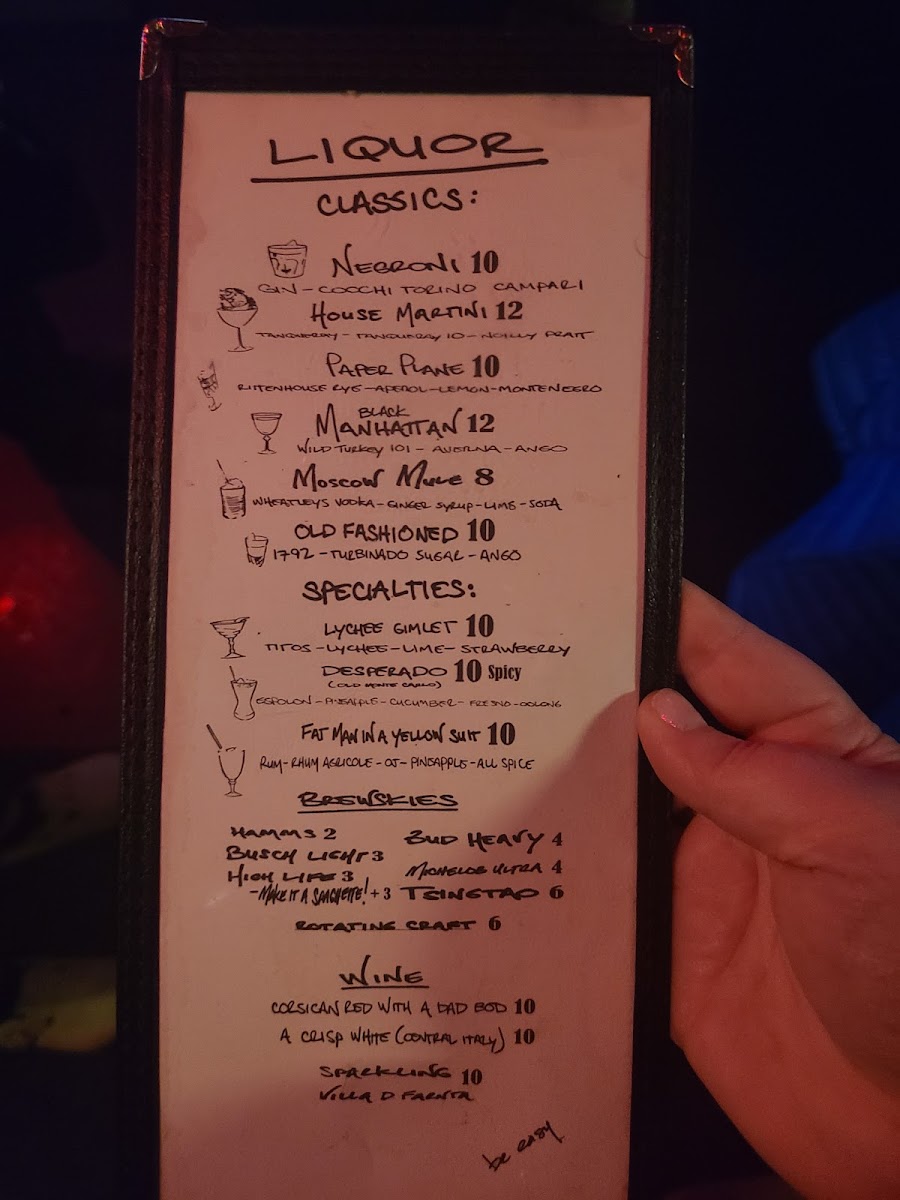 LIQUOR
CLASSICS:
NEGRONI 10
GIN - COCCHI TORINO CAMPARI
HOUSE MARTINI 12
TANQUERAY - TANQUERAY 10 - NOILLY PRATT
PAPER PLANE 10
RITTENHOUSE RYE - APEROL - LEMON - MONTENEGRO
BLACK
MANHATTAN 12
WILD TURKEY 101 - AVERNA - ANGO
MOSCOW MULE 8
WHEATLEYS VODKA - GINGER SYRUP - LIME - SODA
OLD FASHIONED 10
1792 - TURBINADO SUGAR - ANGO
SPECIALTIES:
LYCHEE GIMLET 10
TITOS - LYCHEE - LIME - STRAWBERRY
DESPERADO 10 Spicy
(OLD MONTE CARLO)
ESPOLON - PINEAPPLE - CUCUMBER - FRESNO - OOLONG
FAT MAN IN A YELLOW SUIT 10
RUM - RHUM AGRICOLE - OJ - PINEAPPLE - ALL SPICE
BREWSKIES
HAMMS 2
BUSCH LIGHT 3
HIGH LIFE 3
- MAKE IT A SPAGHETTI! + 3
BUD HEAVY 4
MICHELOB ULTRA 4
TSINGTAO 6
ROTATING CRAFT 6
WINE
CORSICAN RED WITH A DAD BOD 10
A CRISP WHITE (CENTRAL ITALY) 10
SPARKLING 10
VILLA D
be easy